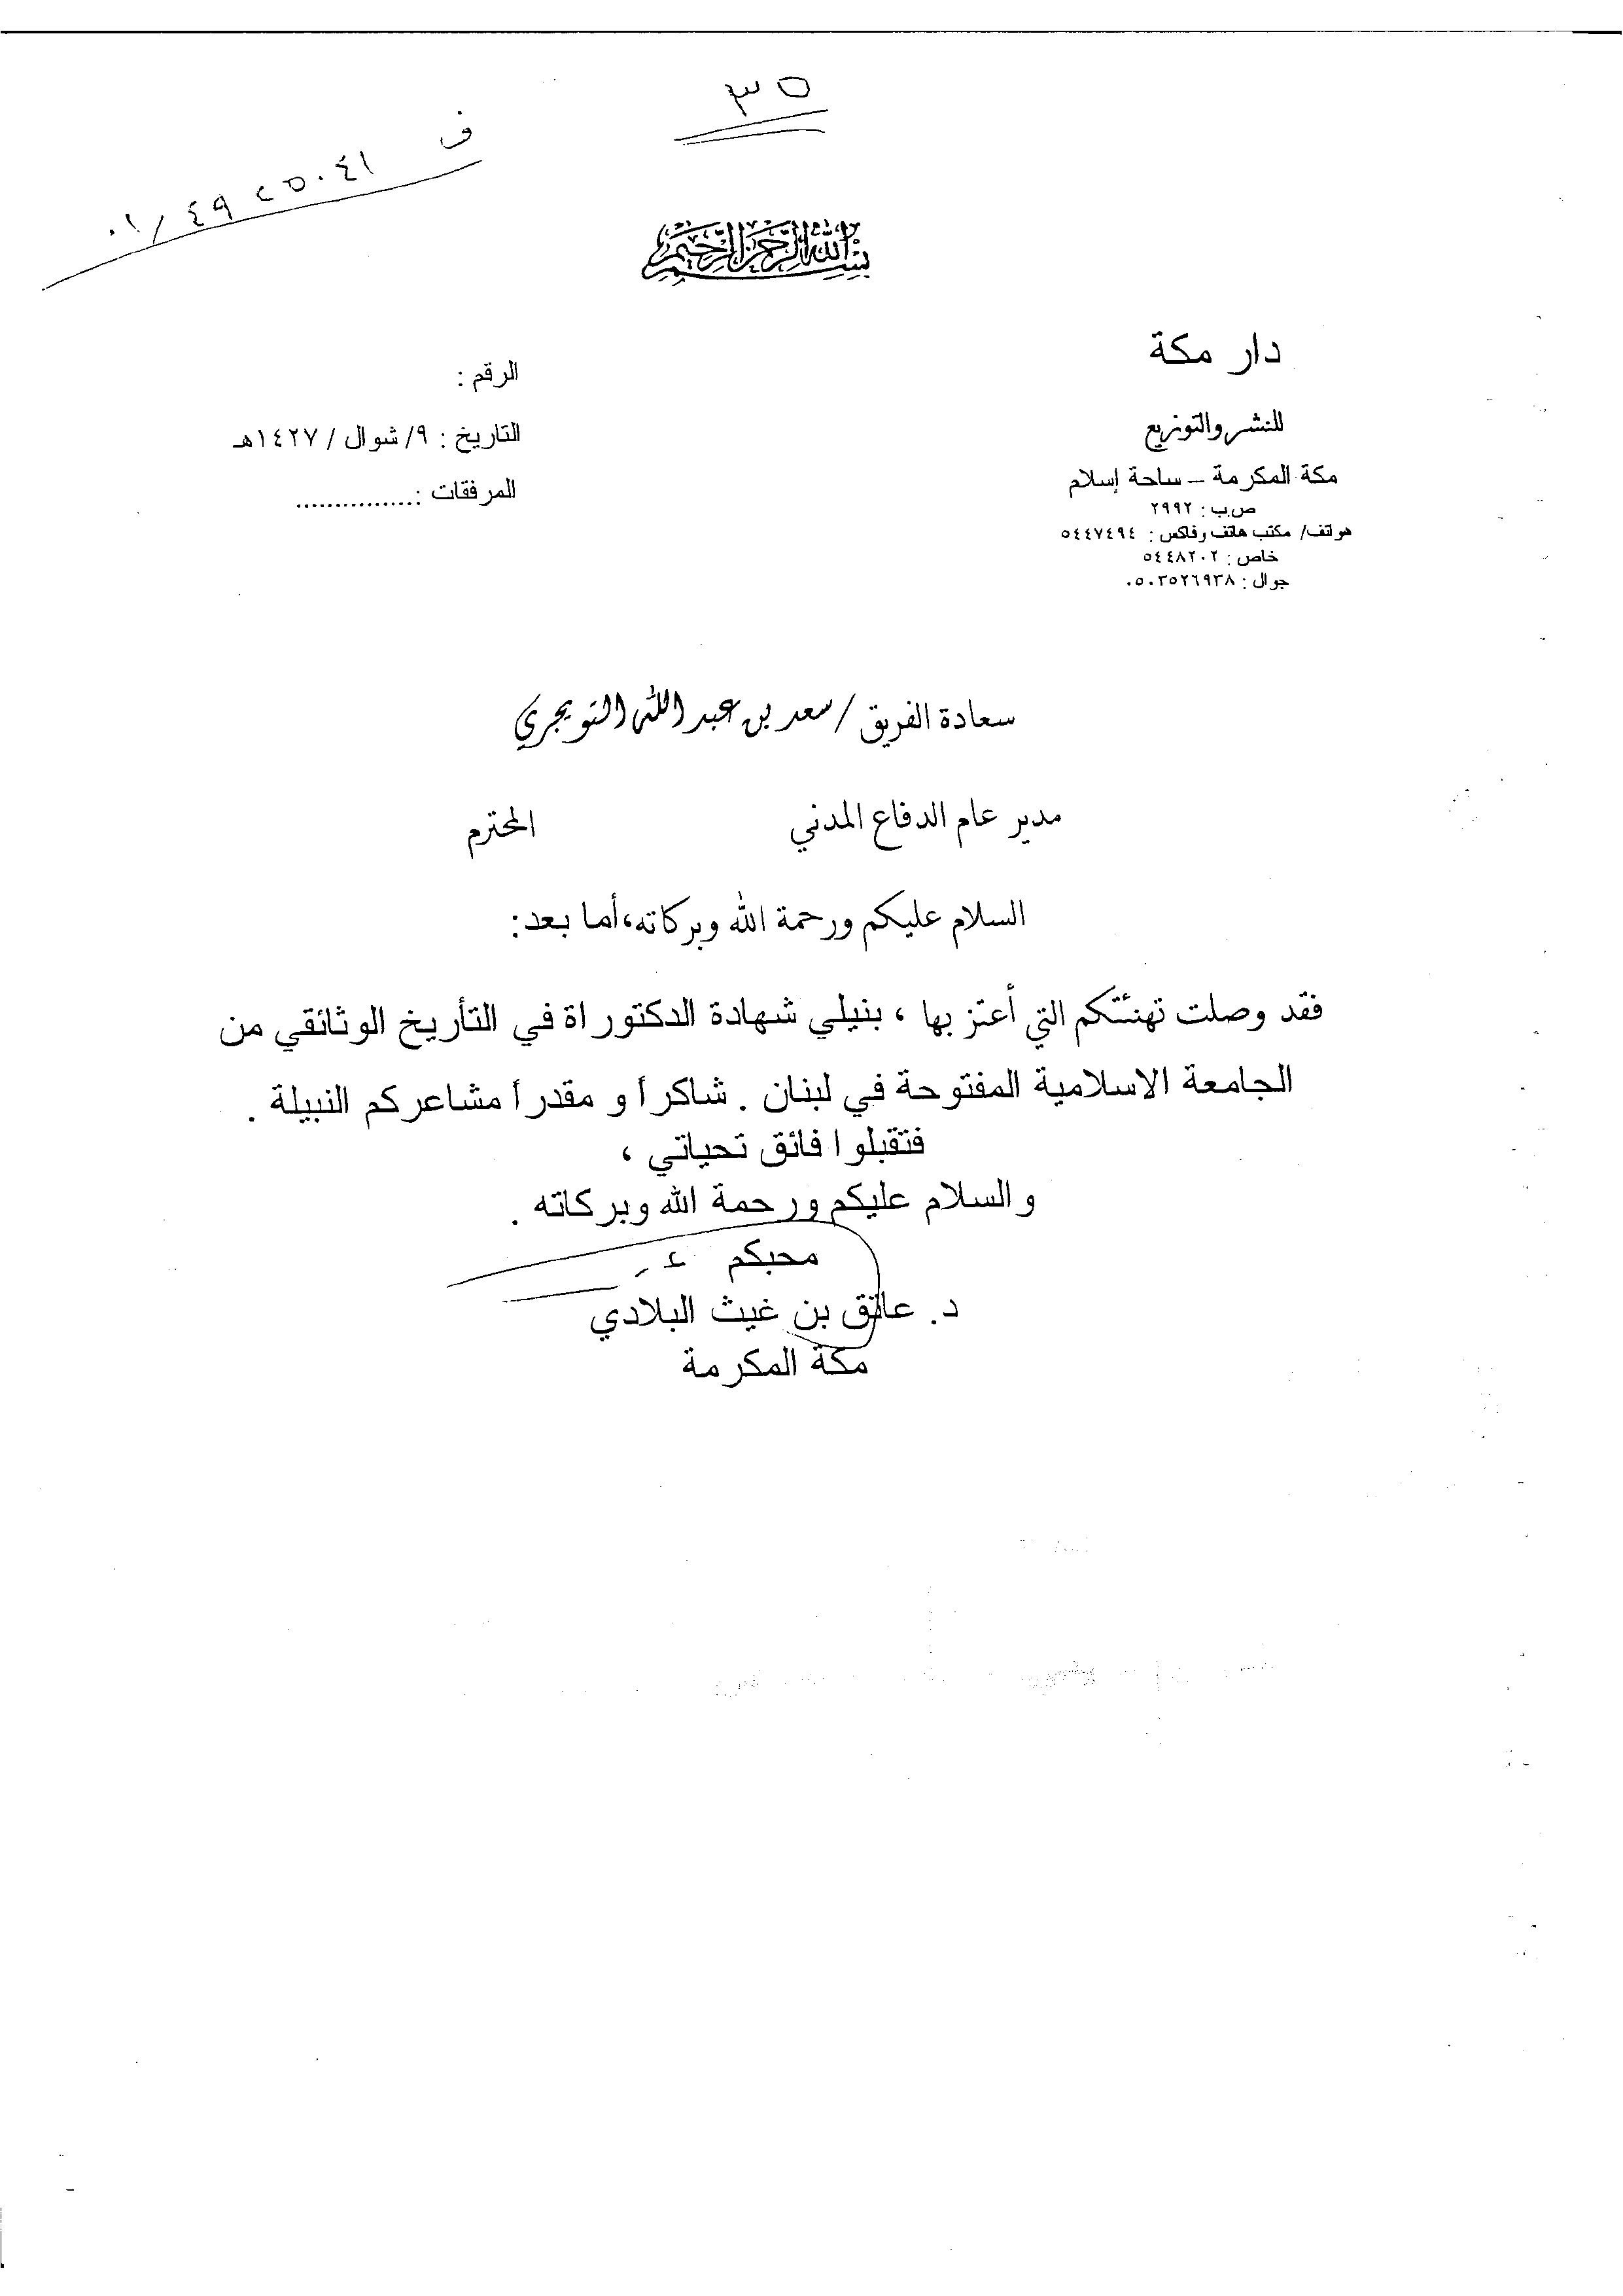 ٣٥
ف ٠١/٤٩٢٥٠٤١
بسم الله الرحمن الرحيم
دار مكة
للنشر والتوزيع
مكة المكرمة – ساحة إسلام
ص.ب : ٢٩٩٢
هواتف/ مكتب هاتف وفاكس : ٥٤٤٧٤٩٤
خاص : ٥٤٤٨٢٠٢
جوال : ٠٥٠٣٥٢٦٩٣٨
الرقم :
التاريخ : ٩/ شوال / ١٤٢٧هـ
المرفقات :...............
سعادة الفريق / سعد بن عبد الله التويجري
مدير عام الدفاع المدني المحترم
السلام عليكم ورحمة الله وبركاته،أما بعد:
فقد وصلت تهنئتكم التي أعتز بها ، بنيلي شهادة الدكتوراة في التأريخ الوثائقي من
الجامعة الاسلامية المفتوحة في لبنان . شاكرأ و مقدرأ مشاعركم النبيلة .
فتقبلوا فائق تحياتي ،
والسلام عليكم ورحمة الله وبركاته .
محبكم
د. عاتق بن غيث البلادي
مكة المكرمة